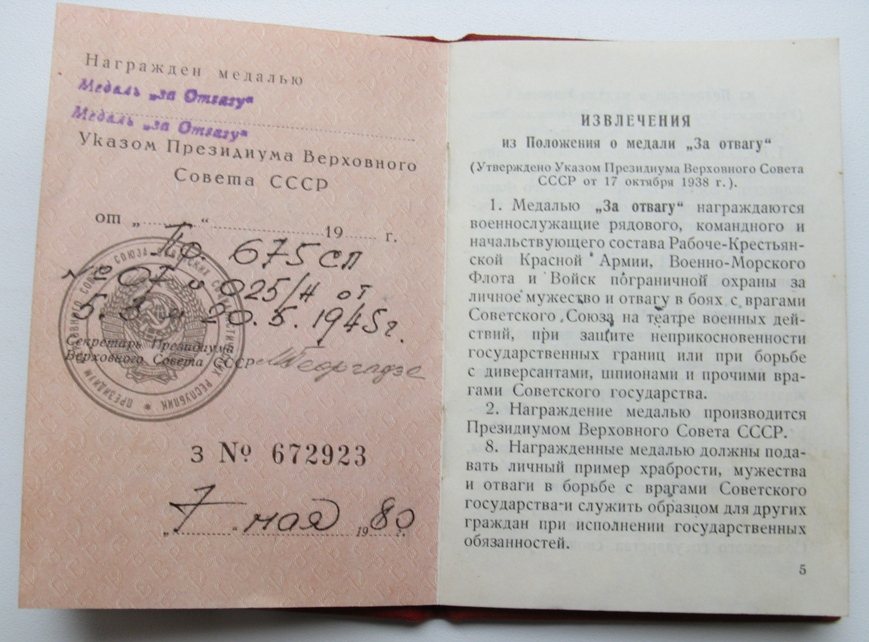 Награжден медалью
Медаль „за Отвагу“
Медаль „за Отвагу“
Указом Президиума Верховного
Совета СССР
от „ “ 19 г.
Пр. 675 СП
№ 07 и 025/н от
5.3 и 20.5.1945г.
Секретарь Президиума
Верховного Совета СССР МГеоргадзе
З № 672923
„7“ мая 1980 г.
ИЗВЛЕЧЕНИЯ
из Положения о медали „За отвагу“
(Утверждено Указом Президиума Верховного Совета
СССР от 17 октября 1938 г.).
1. Медалью „За отвагу“ награждаются
военнослужащие рядового, командного и
начальствующего состава Рабоче-Крестьян-
ской Красной Армии, Военно-Морского
Флота и Войск пограничной охраны за
личное мужество и отвагу в боях с врагами
Советского Союза на театре военных дей-
ствий, при защите неприкосновенности
государственных границ или при борьбе
с диверсантами, шпионами и прочими вра-
гами Советского государства.
2. Награждение медалью производится
Президиумом Верховного Совета СССР.
8. Награжденные медалью должны пода-
вать личный пример храбрости, мужества
и отваги в борьбе с врагами Советского
государства и служить образцом для других
граждан при исполнении государственных
обязанностей.
5